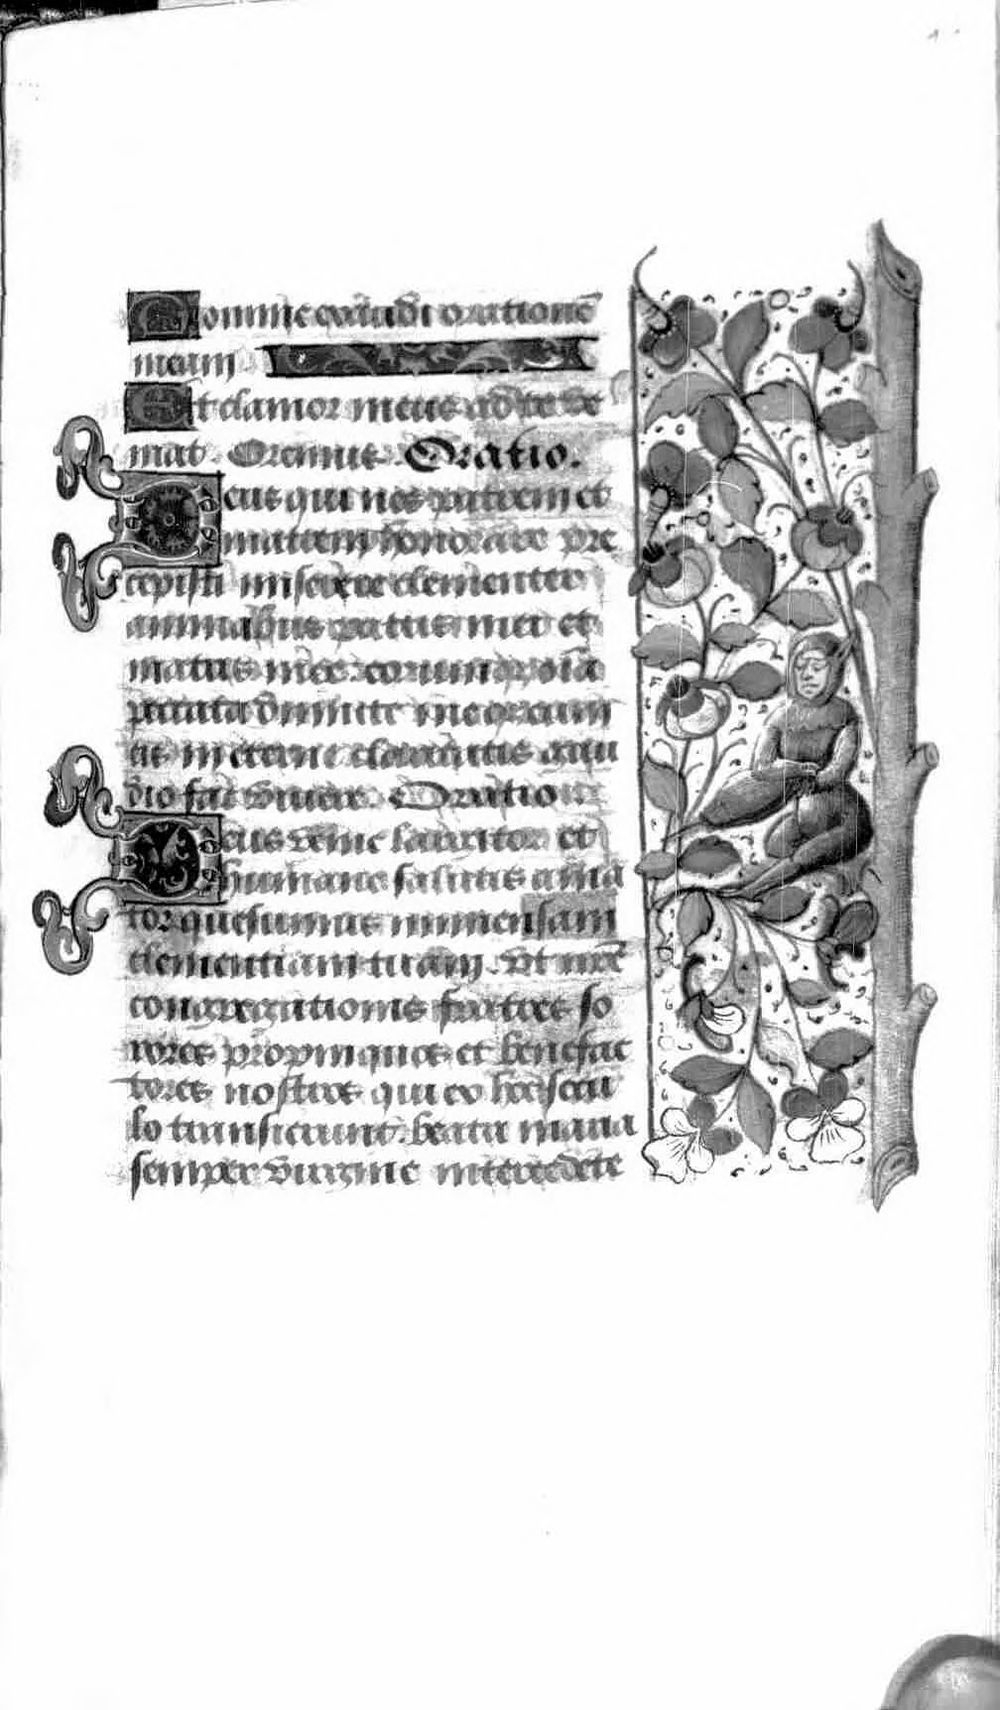 Domine exaudi orationē
meam
Et clamor meus ad te ve
niat. Oremus. Oratio.
Deus qui nos patrem et
matrem honorare pre
cepisti miserere clementer
animabus patris mei et
matris mee eorumq; oīa
peccata dimitte meq; eum
eis in eterne claritatis gau
dio fac vivere. Oratio
Deus venie largitor et
humane salutis ama
tor quesumus immensam
clementiam tuam. vt nrē
congregationis fratres so
rores propinquos et benefac
tores nostros qui ex hoc secu
lo transierunt. beata maria
semper virgine intercedēte